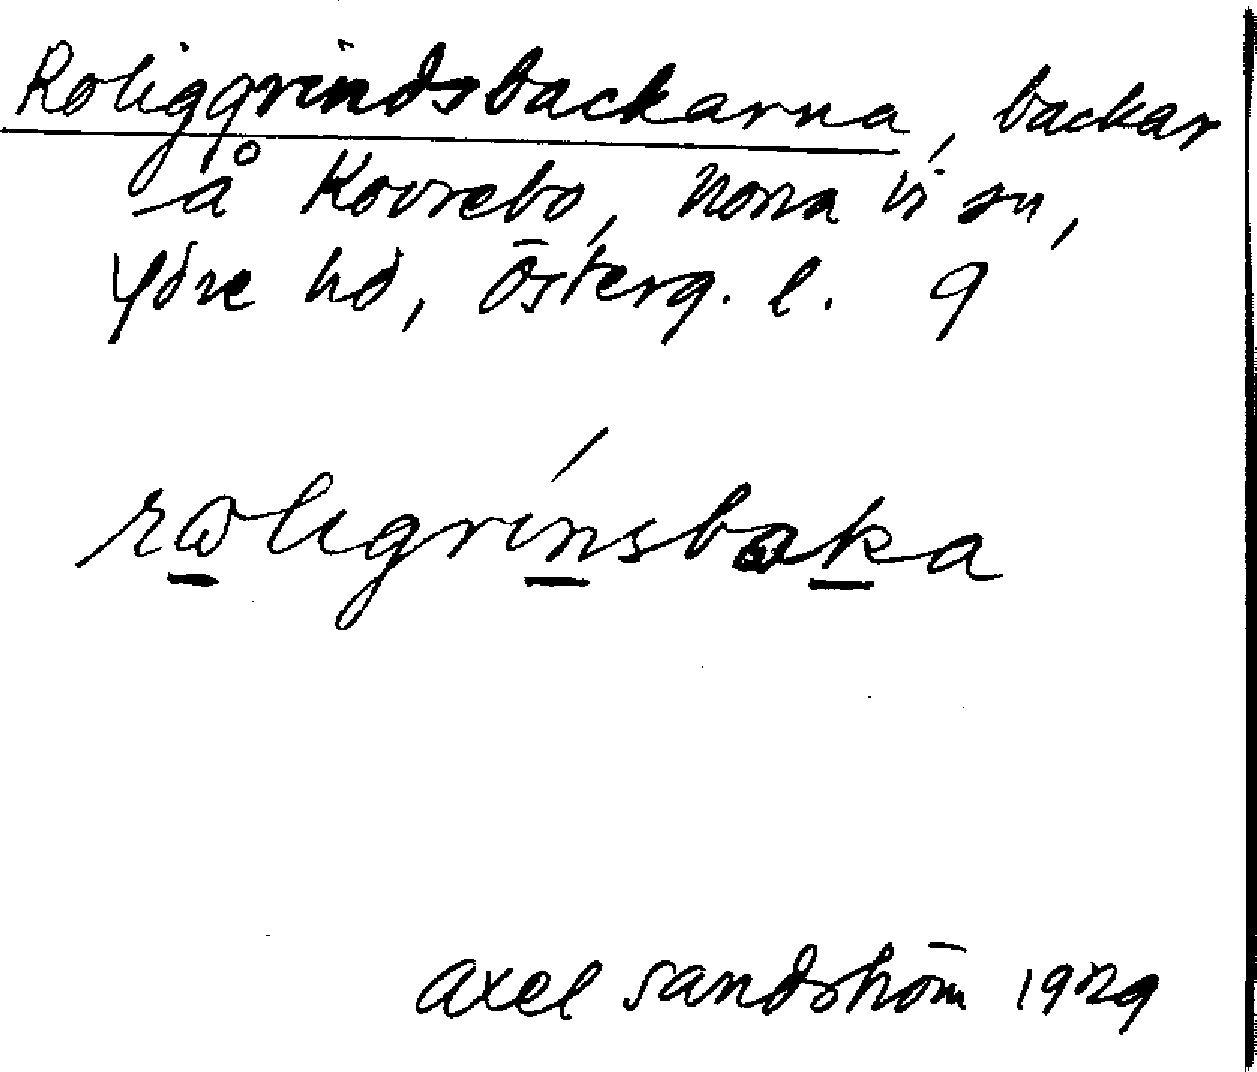 Roliggrindsbackarna, backar
å Kovrebo, Norra Vi sn,
Ydre hd, Österg. l. 9
rωligrínsbaka
Axel Sandström 1929